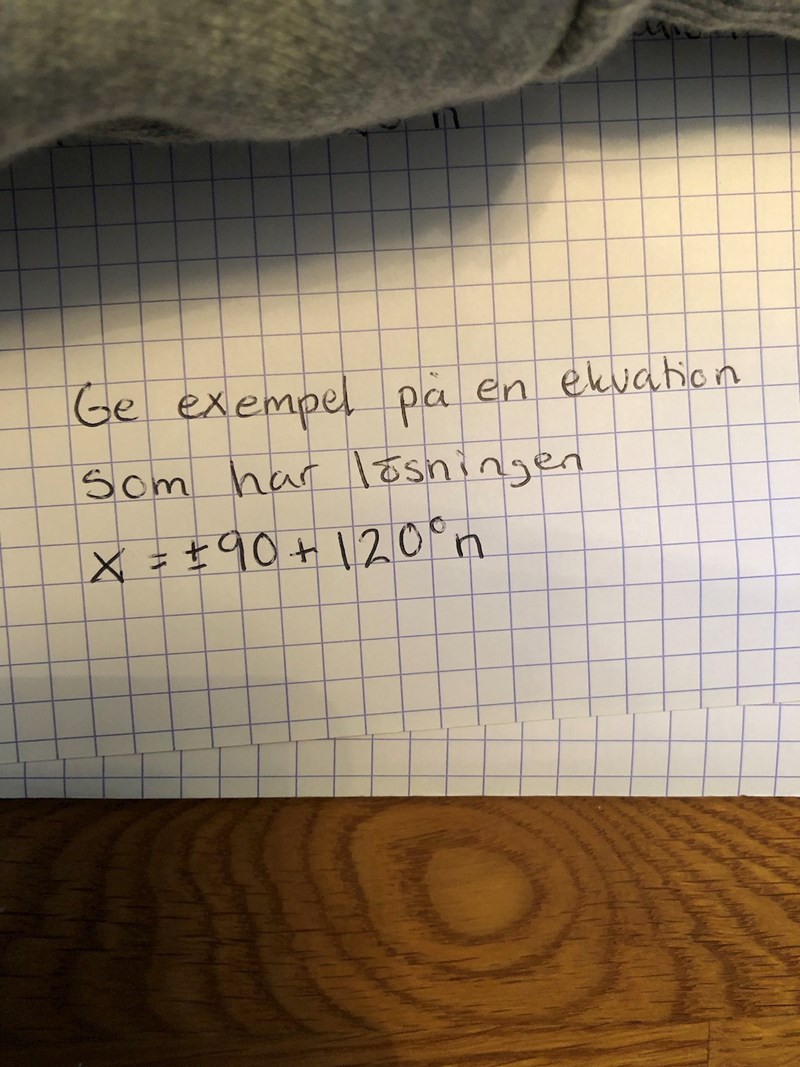 Ge exempel på en ekvation
som har lösningen
x = ±90 + 120°n